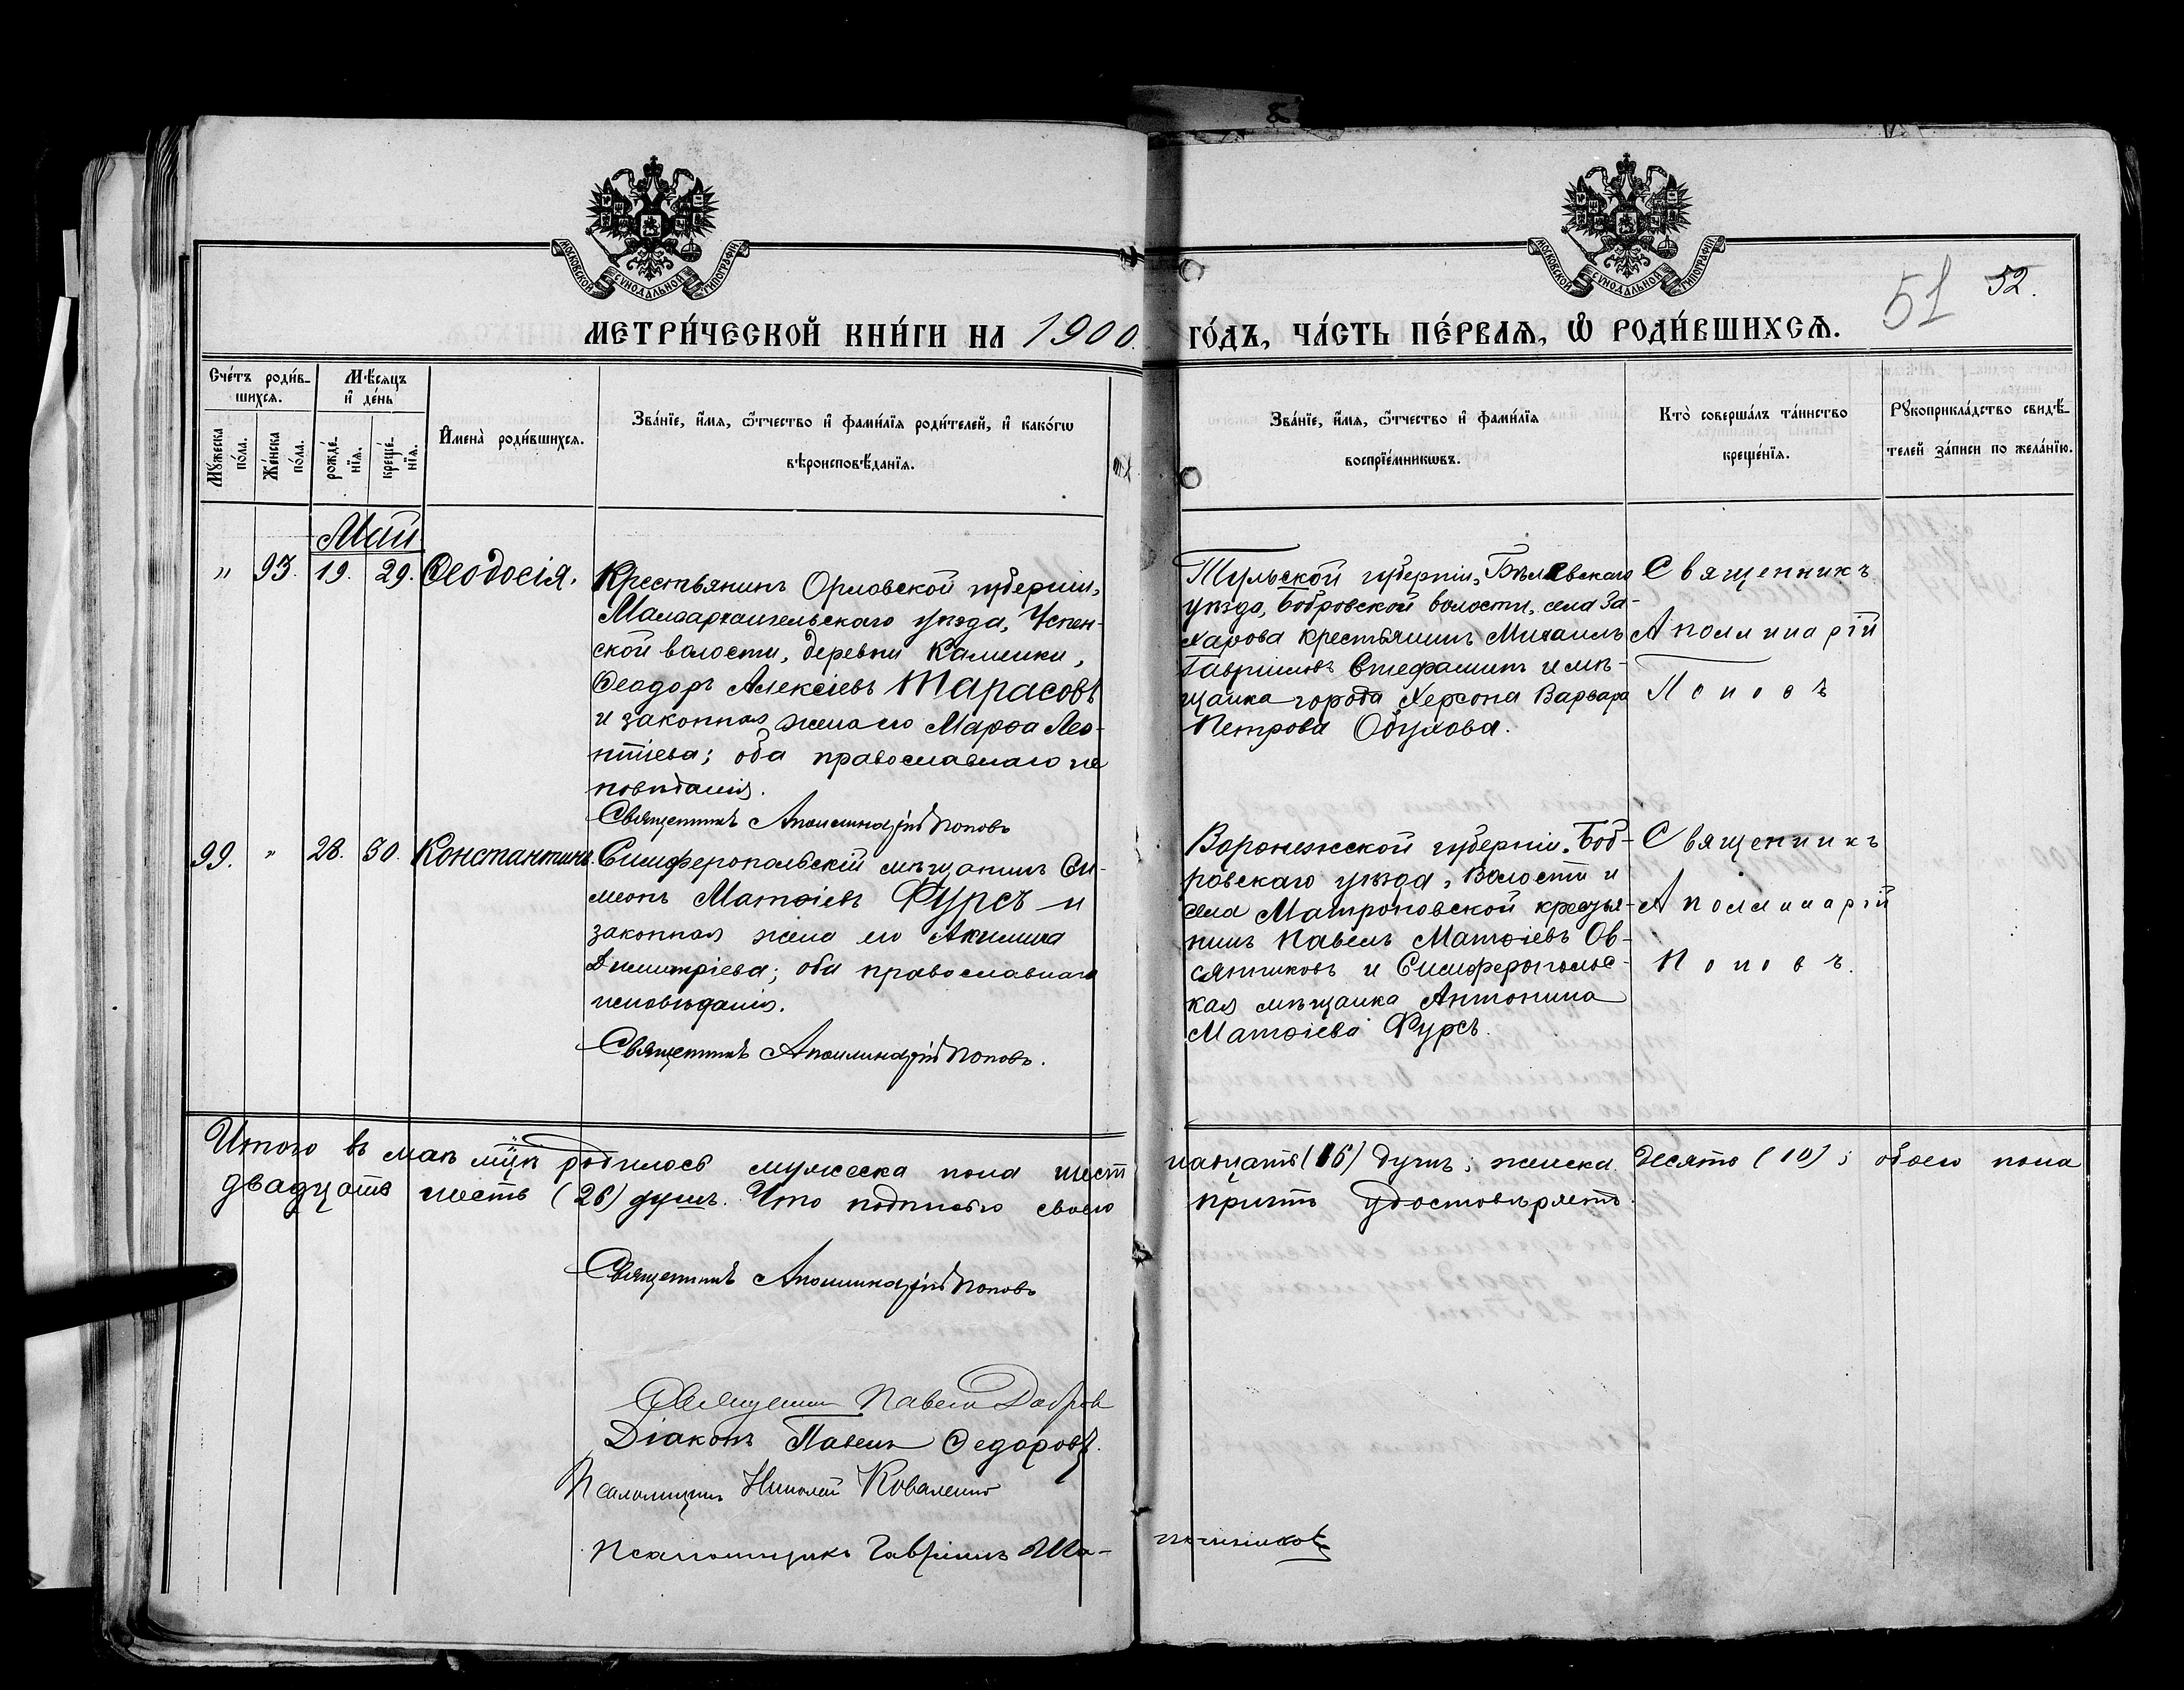 МОСКОВСКОЙ СѴНОДАЛЬНОЙ ТИПОГРАФІИ
МОСКОВСКОЙ СѴНОДАЛЬНОЙ ТИПОГРАФІИ
51 52.
МЕТРИ́ЧЕСКОЙ КНИ́ГИ НА 1900 ГО́ДЪ, ЧА́СТЬ ПЕ́РВАѦ, Ѡ҆ РОДИ́ВШИХСѦ.
Сче́тъ роди́в-
шихсѧ.
Мꙋ́жеска по́ла.
Же́нска по́ла.
Мѣ́сѧцъ
и҆ де́нь
рожде́-
нїѧ.
креще́-
нїѧ.
И҆мена̀ роди́вшихсѧ.
Зва́нїе, и҆́мѧ, ѻ҆́тчество и҆ фами́лїѧ роди́телей, и҆ како́гѡ
вѣроисповѣ́данїѧ.
Зва́нїе, и҆́мѧ, ѻ҆́тчество и҆ фами́лїѧ
воспрїе́мникѡвъ.
Кто̀ соверша́лъ та́инство
креще́нїѧ.
Рꙋкоприкла́дство свидѣ́-
телей за́писи по жела́нїю.
Май
" 93. 19. 29. Ѳеодосія.
Крестьянинъ Орловской губерніи,
Малоархангельскаго уѣзда, Успен-
ской волости, деревни Каменки,
Ѳеодоръ Алексіевъ Тарасовъ
и законная жена его Марѳа Лео-
нтіева; оба православнаго ис
повѣданія.
Священникъ Аполлинарій Поповъ
Тульской губерніи, Бѣлевскаго
уѣзда, Бобровской волости, села За-
харова крестьянинъ Михаилъ
Гавріиловъ Стефанинъ и мѣ-
щанка города Херсона Варвара
Петрова Обухова.
Священникъ
Аполлинарій
Поповъ
99. " 28. 30. Константинъ.
Симферопольскій мѣщанинъ Си-
меонъ Матѳіевъ Фурсъ и
законная жена его Акилина
Димитріева; оба православнаго
исповѣданія.
Священникъ Аполлинарій Поповъ.
Воронежской губерніи, Боб-
ровскаго уѣзда, волости и
села Матроновской крестья-
нинъ Павелъ Матѳіевъ Ов-
сянниковъ и Симферопольс-
кая мѣщанка Антонина
Матѳіева Фурсъ.
Священникъ
Аполлинарій
Поповъ.
Итого въ маѣ мцѣ родилось мужеска пола шест
надцать (16) душъ; женска десять (10); обоего пола
двадцать шесть (26) душъ. Что подписью своею
причтъ удостовѣряетъ.
Священникъ Аполлинарій Поповъ
Священникъ Павелъ
Діаконъ Павелъ Ѳедоровъ.
Псаломщикъ Николай Коваленко
Псаломщикъ Гавріилъ Ша-